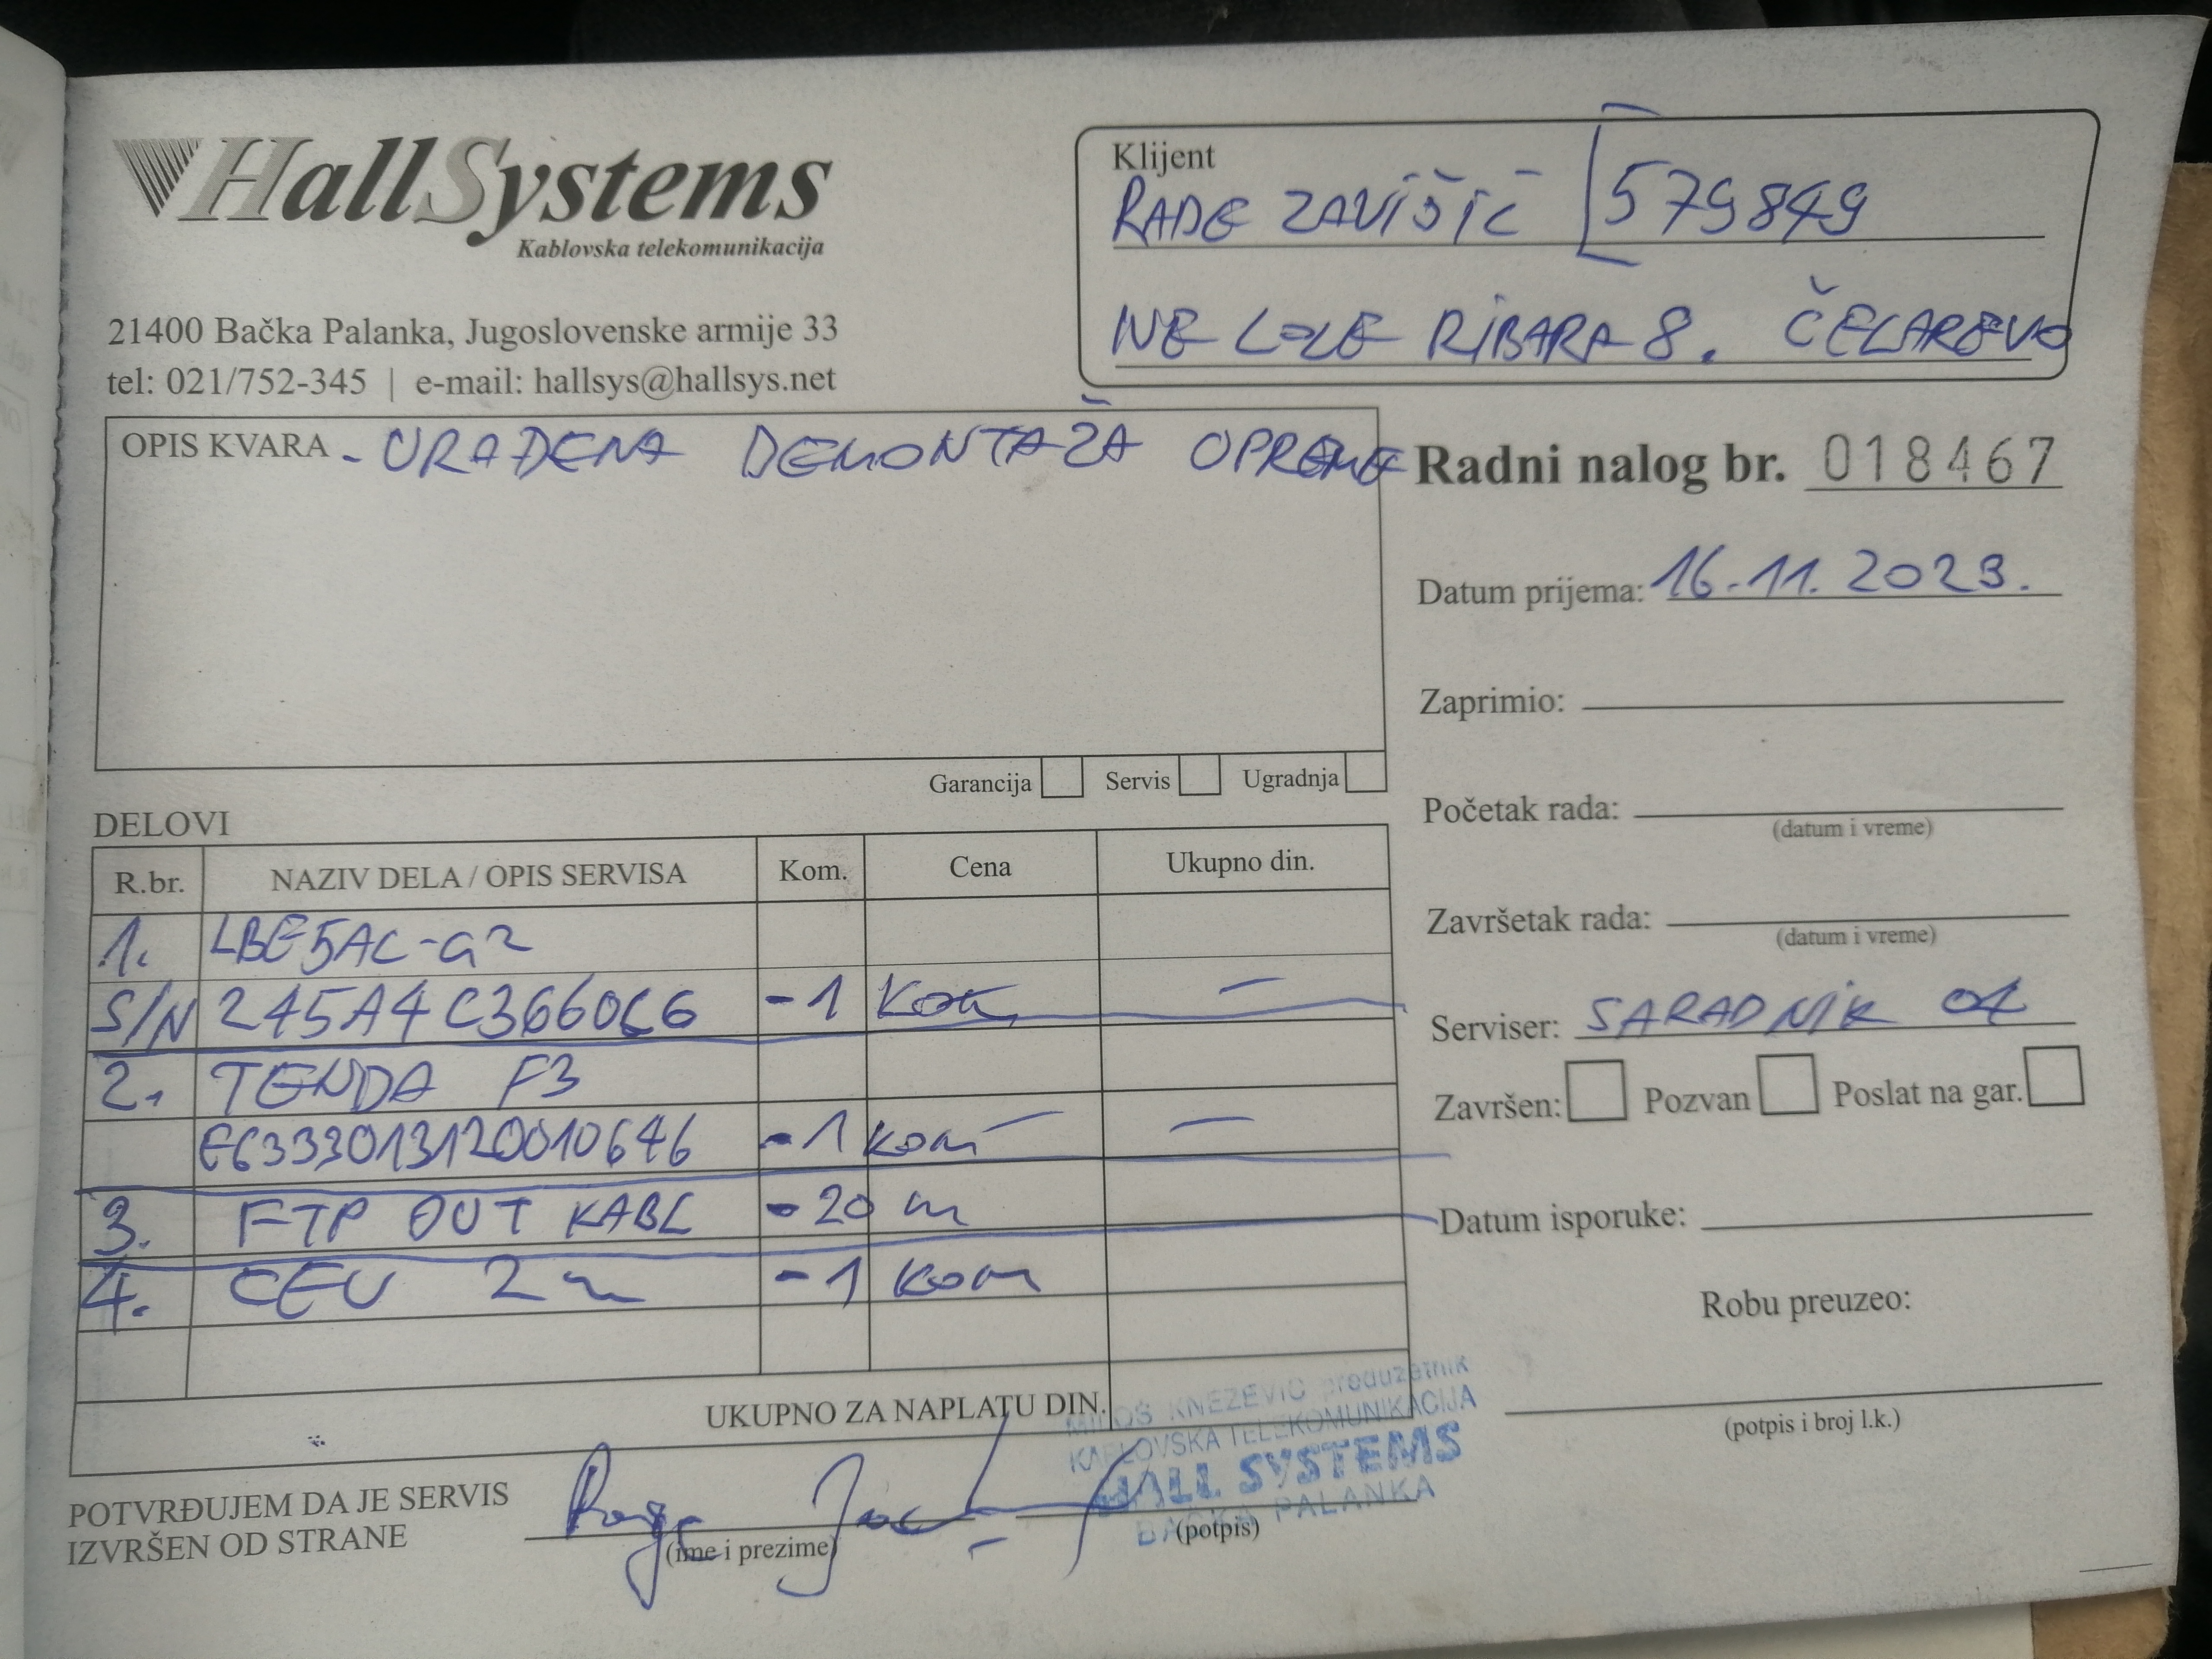 HallSystems
Kablovska telekomunikacija
21400 Bačka Palanka, Jugoslovenske armije 33
tel: 021/752-345 | e-mail: hallsys@hallsys.net
Klijent
RADE ZAVIŠIĆ [579849
IVE LOLE RIBARA 8. ČELAREVO
OPIS KVARA - URAĐENA DEMONTAŽA OPREME
Garancija Servis Ugradnja
Radni nalog br. 018467
Datum prijema: 16.11.2023.
Zaprimio:
Početak rada:
(datum i vreme)
Završetak rada:
(datum i vreme)
Serviser: SARADNIK 01
Završen: Pozvan Poslat na gar.
Datum isporuke:
Robu preuzeo:
(potpis i broj l.k.)
DELOVI
R.br. NAZIV DELA / OPIS SERVISA Kom. Cena Ukupno din.
1. LBE5AC-G2
S/N 245A4C3660C6 -1 kom -
2. TENDA F3
E6333013120010646 -1 kom - -
3. FTP OUT KABL -20 m
4. CEV 2m -1 kom
UKUPNO ZA NAPLATU DIN.
POTVRĐUJEM DA JE SERVIS
IZVRŠEN OD STRANE
(ime i prezime)
(potpis)
MILOŠ KNEŽEVIĆ preduzetnik
KABLOVSKA TELEKOMUNIKACIJA
HALL SYSTEMS
BAČKA PALANKA